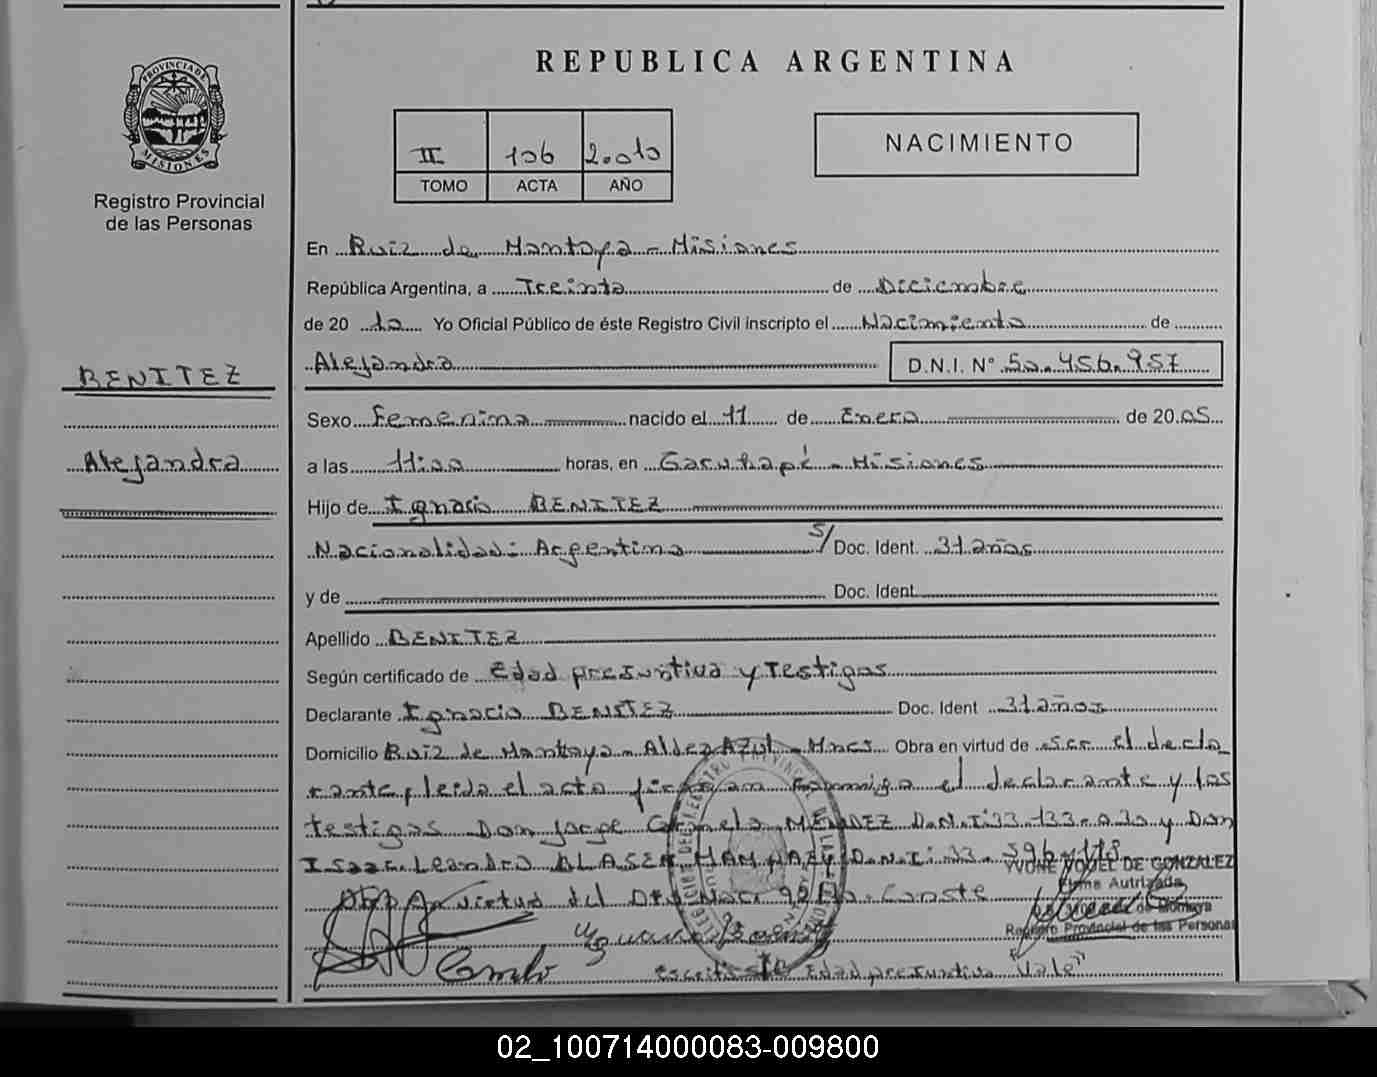 REPUBLICA ARGENTINA
PROVINCIA DE MISIONES
Registro Provincial
de las Personas
II 106 2.010
TOMO ACTA AÑO
NACIMIENTO
En Ruiz de Montoya - Misiones
República Argentina, a Treinta de Diciembre
de 20 10 Yo Oficial Público de éste Registro Civil inscripto el Nacimiento de
Alejandra D.N.I. Nº 50.456.957
BENITEZ
Alejandra
Sexo Femenino nacido el 11 de Enero de 20 05
a las 11:00 horas, en Garuhapé - Misiones
Hijo de Ignacio BENITEZ
Nacionalidad: Argentina S/ Doc. Ident. 31 años
y de Doc. Ident.
Apellido BENITEZ
Según certificado de Edad presuntiva y Testigos
Declarante Ignacio BENITEZ Doc. Ident 31 años
Domicilio Ruiz de Montoya - Aldea Azul - Mnes Obra en virtud de ser el decla
rante leida el acta firman conmigo el declarante y los
testigos Don Jorge MENDEZ D.N.I 33.133. y Don
Isaac Leandro D.N.I: 33.596.
virtud del Nac. Conste
YVONE DE GONZALEZ
Firma Autrizada
Registro Provincial de las Personas
Edad presuntiva "Vale"
02_100714000083-009800